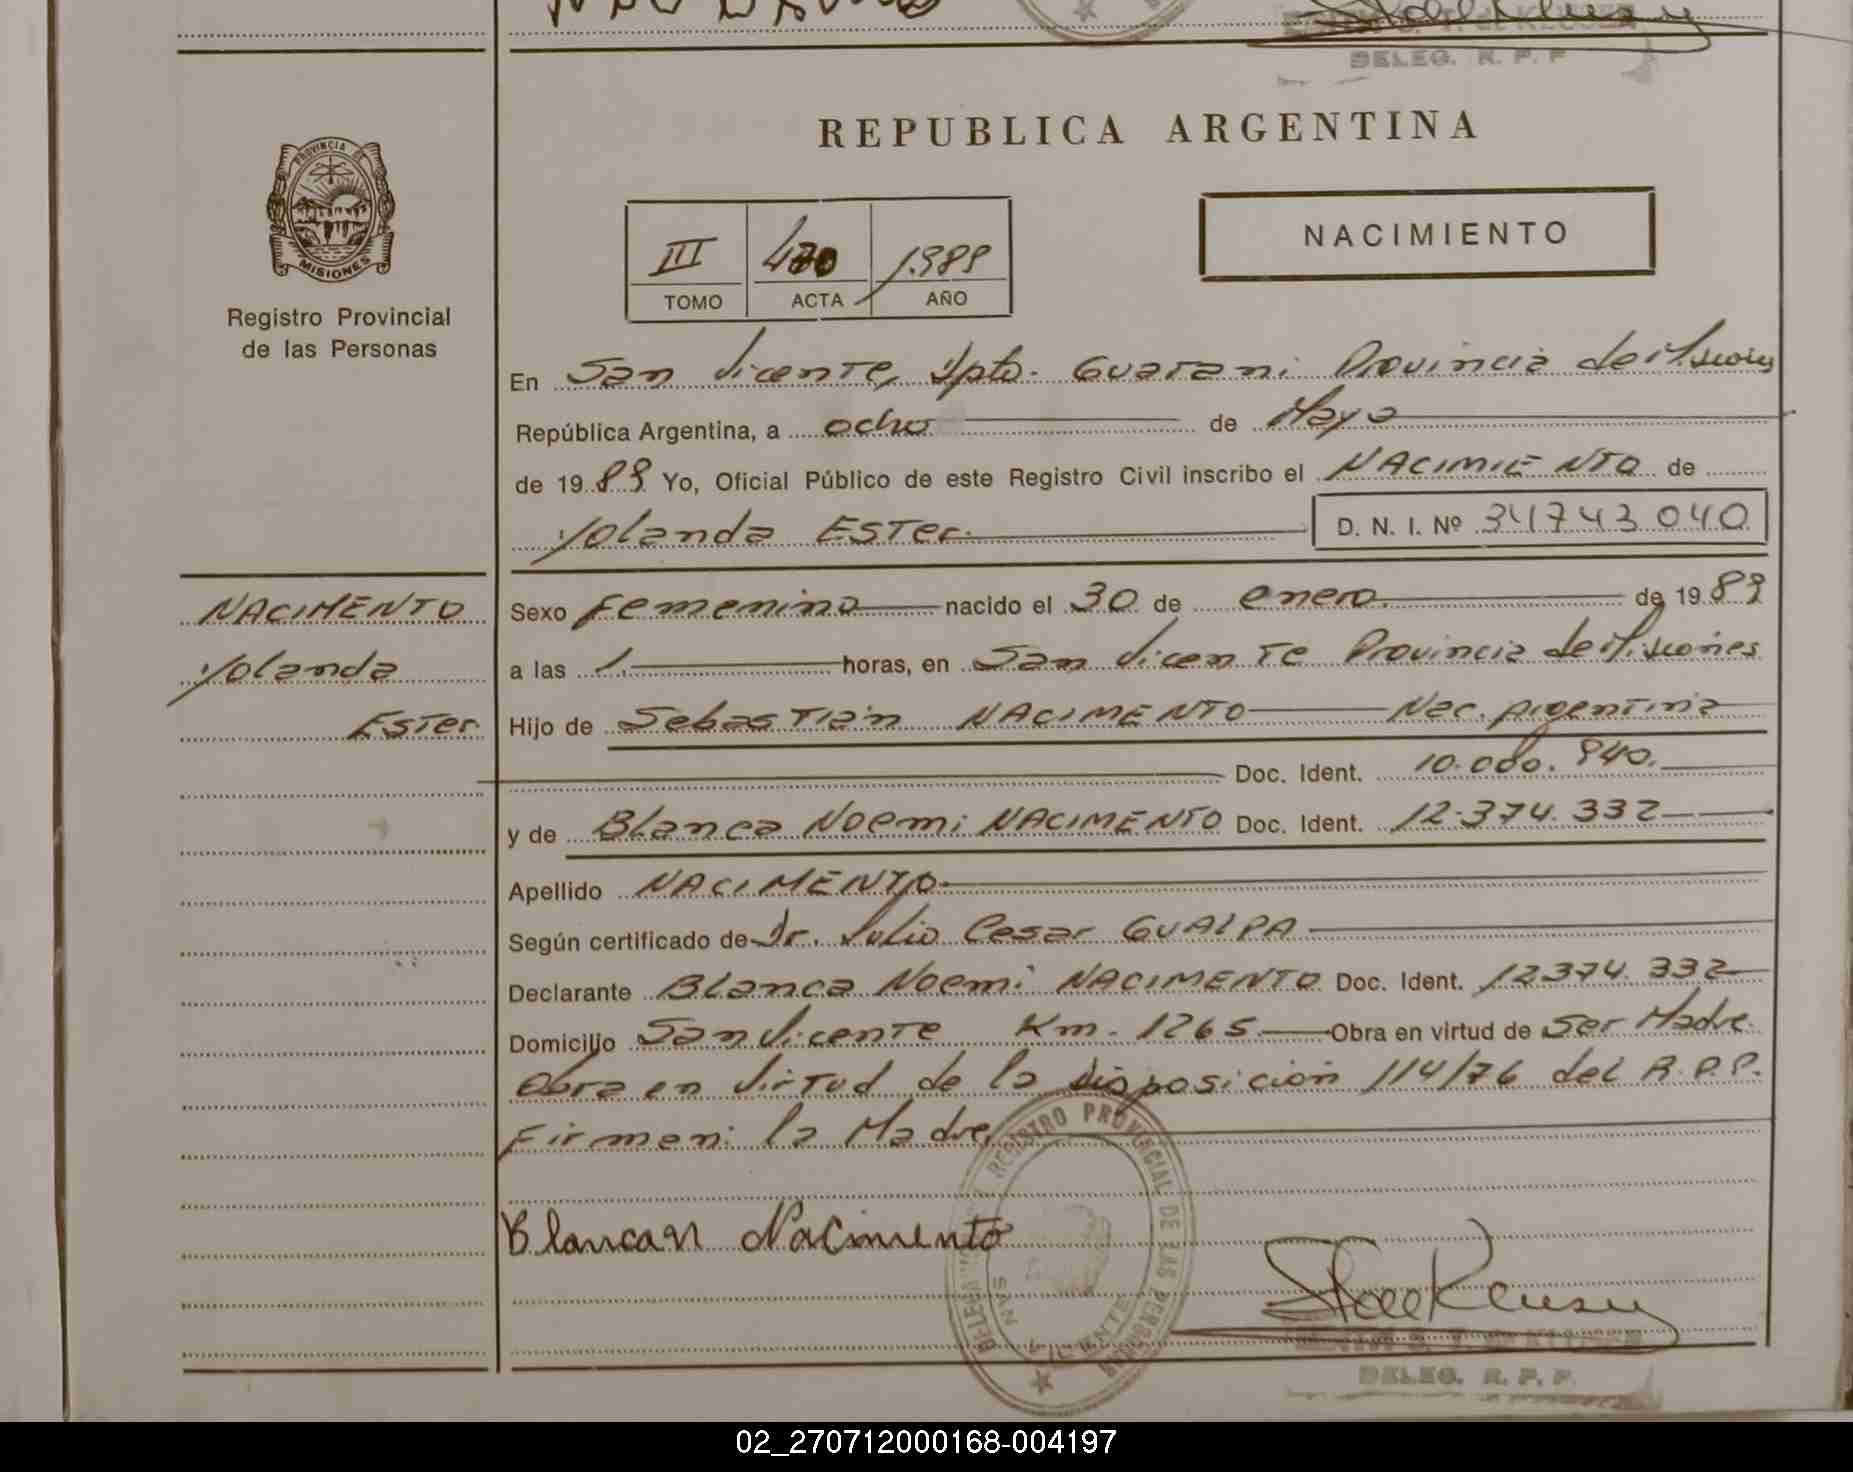 DELEG. R. P. P
REPUBLICA ARGENTINA
PROVINCIA DE
MISIONES
Registro Provincial
de las Personas
III 1989
TOMO ACTA AÑO
NACIMIENTO
En San Vicente, Dpto. Guarani Provincia de Misiones
República Argentina, a ocho de Mayo
de 1989 Yo, Oficial Público de este Registro Civil inscribo el NACIMIENTO de
Yolanda Ester. D. N. I. Nº 34743040
NACIMENTO
Yolanda
Ester
Sexo Femenino nacido el 30 de enero. de 1989
a las 1. horas, en San Vicente Provincia de Misiones
Hijo de Sebastián NACIMENTO Nac. Argentina
Doc. Ident. 940.
y de Blanca Noemi NACIMENTO Doc. Ident. 12.374.332
Apellido NACIMENTO.
Según certificado de Dr. Julio Cesar GUALPA
Declarante Blanca Noemi NACIMENTO Doc. Ident. 12374.332
Domicilio San Vicente Km. 1265. Obra en virtud de Ser Madre.
Obra en Virtud de la disposición 114/76 del R.P.P.
Firmen: la Madre.
REGISTRO PROVINCIAL DE LAS PERSONAS
SAN VICENTE
Blanca N Nacimento
DELEG. R. P. P.
02_270712000168-004197